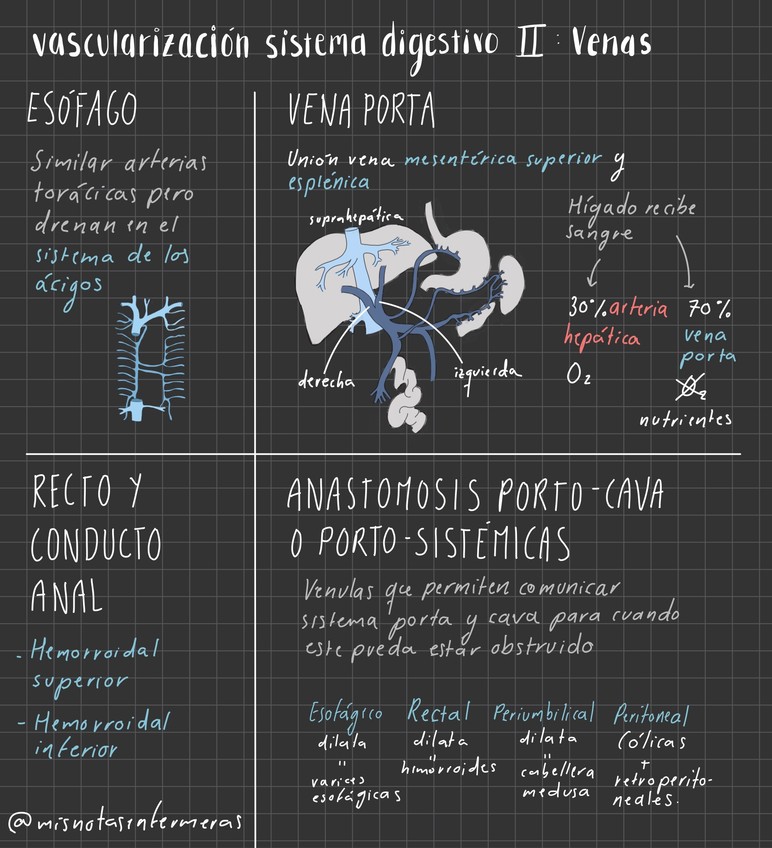 vascularización sistema digestivo II: Venas
ESÓFAGO
Similar arterias
torácicas pero
drenan en el
sistema de los
ácigos
VENA PORTA
Unión vena mesentérica superior y
esplénica
suprahepática
derecha
izquierda
Hígado recibe
sangre
30% arteria
hepática
O₂
70%
vena
porta
O₂
nutrientes
RECTO Y
CONDUCTO
ANAL
- Hemorroidal
superior
- Hemorroidal
inferior
@misnotasinfermeras
ANASTOMOSIS PORTO-CAVA
O PORTO-SISTÉMICAS
Venulas que permiten comunicar
sistema porta y cava para cuando
este pueda estar obstruido
Esofágico
dilata
"
varices
esofágicas
Rectal
dilata
"
himorroides
Periumbilical
dilata
"
cabellera
medusa
Peritoneal
Cólicas
+
retroperito-
neales.